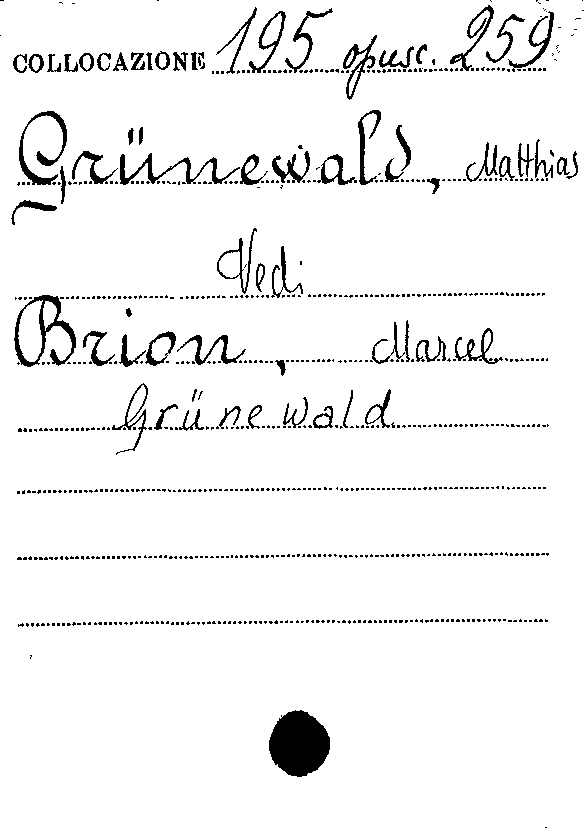 COLLOCAZIONE 195 opusc. 259
Grünewald, Matthias
Vedi
Brion, Marcel
Grünewald